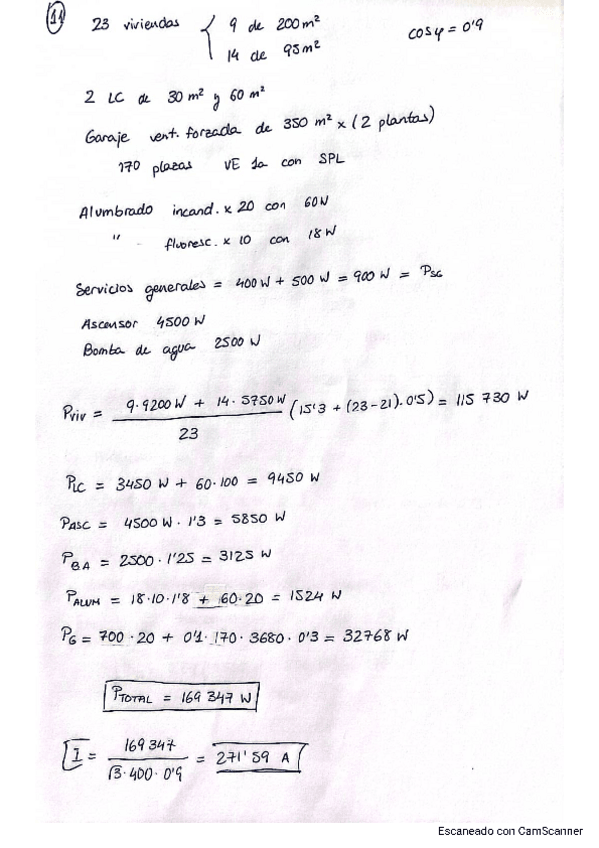 11
23 viviendas { 9 de 200 m² cosφ = 0'9
14 de 95 m²
2 LC de 30 m² y 60 m²
Garaje vent. forzada de 350 m² x (2 plantas)
170 plazas VE 1a con SPL
Alumbrado incand. x 20 con 60W
" - fluoresc. x 10 con 18 W
Servicios generales = 400 W + 500 W = 900 W = PSG
Ascensor 4500 W
Bomba de agua 2500 W
Pviv = (9·9200 W + 14·5750 W) / 23 (15'3 + (23-21)·0'5) = 115 730 W
PLC = 3450 W + 60·100 = 9450 W
PASC = 4500 W · 1'3 = 5850 W
PBA = 2500 · 1'25 = 3125 W
PALUM = 18·10·1'8 + 60·20 = 1524 W
PG = 700 · 20 + 0'1 · 170 · 3680 · 0'3 = 32768 W
PTOTAL = 169 347 W
I = 169 347 / (√3·400·0'9) = 271'59 A
Escaneado con CamScanner